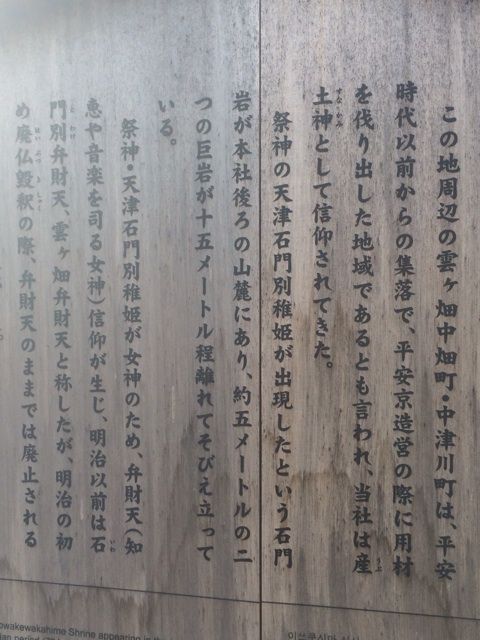 この地周辺の雲ヶ畑中畑町・中津川町は、平安
時代以前からの集落で、平安京造営の際に用材
を伐り出した地域であるとも言われ、当社は産
土神として信仰されてきた。
祭神の天津石門別稚姫が出現したという石門
岩が本社後ろの山麓にあり、約五メートルの二
つの巨岩が十五メートル程離れてそびえ立って
いる。
祭神・天津石門別稚姫が女神のため、弁財天(知
恵や音楽を司る女神)信仰が生じ、明治以前は石
門別弁財天、雲ヶ畑弁財天と称したが、明治の初
め廃仏毀釈の際、弁財天のままでは廃止される
owakewakahime Shrine appearing in
이쓰쿠시마